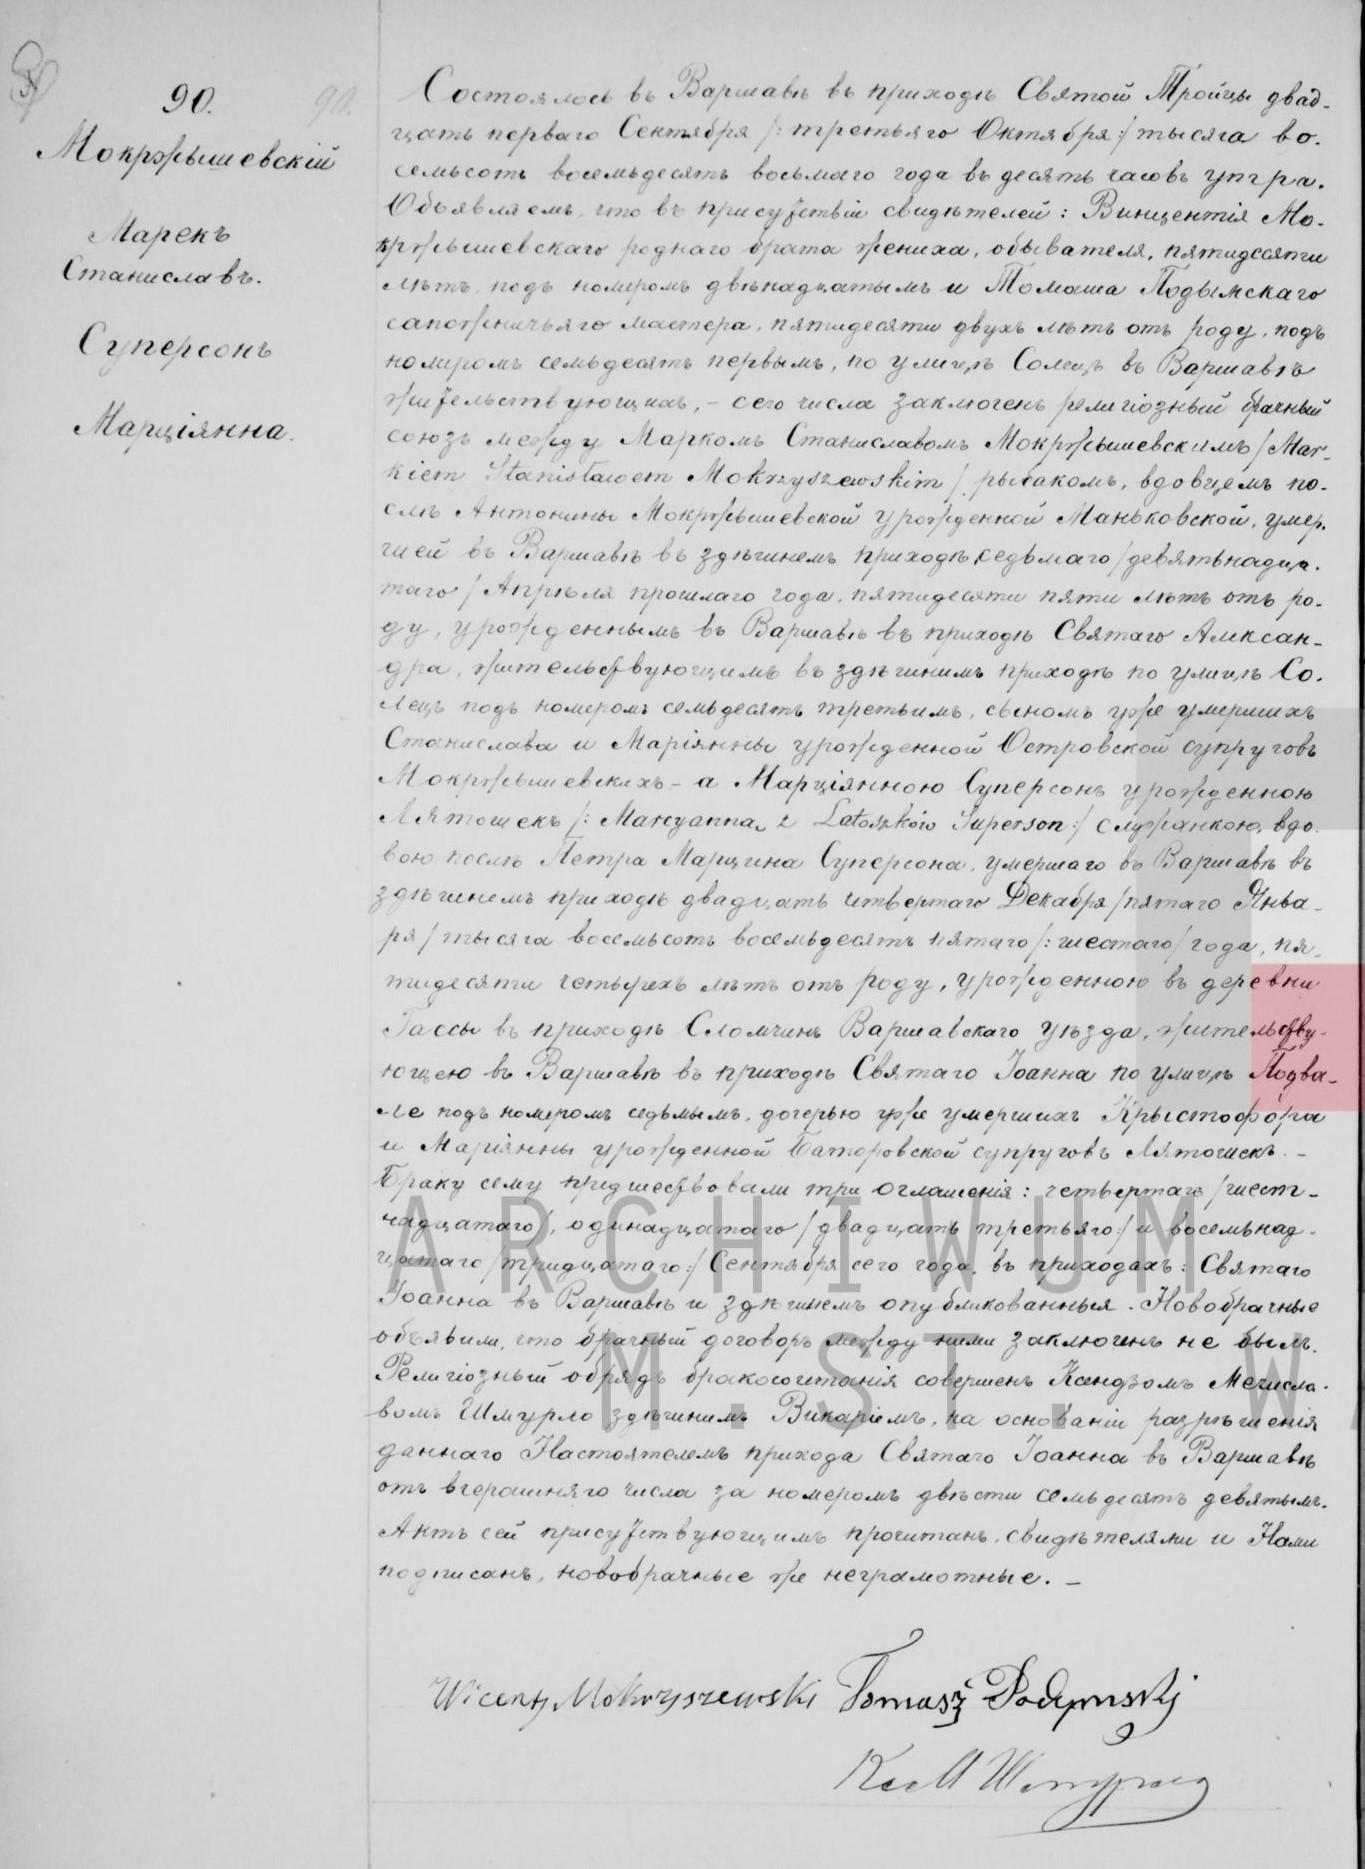 90.
90.
Мокржышевскій
Марекъ
Станиславъ.
Суперсонъ
Марціянна.
Состоялось въ Варшавѣ въ приходѣ Святой Тройцы двад-
цать перваго Сентября /:третьяго Октября:/ тысяча во-
семьсотъ восемьдесятъ восьмаго года въ десять часовъ утра.
Объявляемъ, что въ присутствіи свидѣтелей: Винцентія Мо-
кржышевскаго роднаго брата жениха, обывателя, пятидесяти
лѣтъ, подъ номеромъ двѣнадцатымъ и Томаша Подымскаго
сапожничьяго мастера, пятидесяти двухъ лѣтъ отъ роду, подъ
номеромъ семьдесятъ первымъ, по улицѣ Солецъ въ Варшавѣ
жительствующихъ, – сего числа заключенъ религіозный брачный
союзъ между Маркомъ Станиславомъ Мокржышевскимъ /Mar-
kiem Stanisławem Mokrzyszewskim/ рыбакомъ, вдовцемъ по-
слѣ Антонины Мокржышевской урожденной Маньковской, умер-
шей въ Варшавѣ въ здѣшнемъ приходѣ седьмаго /девятьнадца-
таго/ Апрѣля прошлаго года, пятидесяти пяти лѣтъ отъ ро-
ду, урожденнымъ въ Варшавѣ въ приходѣ Святаго Алексан-
дра, жительствующимъ въ здѣшнимъ приходѣ по улицѣ Со-
лецъ подъ номеромъ семьдесятъ третьимъ, сыномъ уже умершихъ
Станислава и Маріянны урожденной Островской супруговъ
Мокржышевскихъ – а Марціянною Суперсонъ урожденною
Лятошекъ /:Marcyanna z Latoszków Superson:/ служанкою, вдо-
вою послѣ Петра Марцина Суперсона, умершаго въ Варшавѣ въ
здѣшнемъ приходѣ двадцать четвертаго Декабря /пятаго Янва-
ря/ тысяча восемьсотъ восемьдесятъ пятаго /:шестаго/ года, пя-
тидесяти четырехъ лѣтъ отъ роду, урожденною въ деревни
Гассы въ приходѣ Сломчинъ Варшавскаго уѣзда, жительству-
ющею въ Варшавѣ въ приходѣ Святаго Іоанна по улицѣ Подва-
ле подъ номеромъ седьмымъ, дочерью уже умершихъ Крыстофора
и Маріянны урожденной Баторовской супруговъ Лятошекъ. –
Браку сему предшествовали три оглашенія: четвертаго /шест-
надцатаго/, одинадцатаго /двадцать третьяго:/ и восемьнад-
цатаго /тридцатаго:/ Сентября сего года, въ приходахъ: Святаго
Іоанна въ Варшавѣ и здѣшнемъ опубликованныя. Новобрачные
объявили, что брачный договоръ между ними заключенъ не былъ.
Религіозный обрядъ бракосочетанія совершенъ Ксендзомъ Мечисла-
вомъ Шмурло здѣшнимъ Викаріемъ, на основаніи разрѣшенія
даннаго Настоятелемъ прихода Святаго Іоанна въ Варшавѣ
отъ вчерашняго числа за номеромъ двѣсти семьдесятъ девятымъ.
Актъ сей присутствующимъ прочитанъ, свидѣтелями и Нами
подписанъ, новобрачные же неграмотные. –
Wicenty Mokrzyszewski Tomasz Podymski
Кс М Шмурло
ARCHIWUM
M. ST. WA